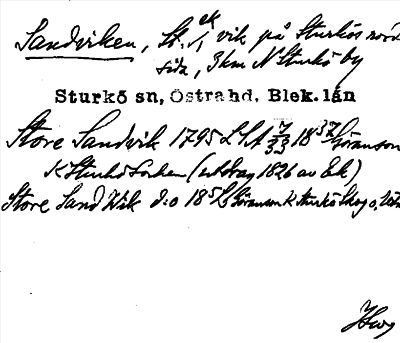 Sandviken, St. ek vik på Sturkös nord
sida, 3 km N Sturkö by
Sturkö sn, Östra hd. Blek. län
Store Sandvik 1795 LSA 18 Göranson
K Sturkö Socken (utdrag 1826 av Ek)
Store Sand Wik d:o Göranson K Sturkö Skog